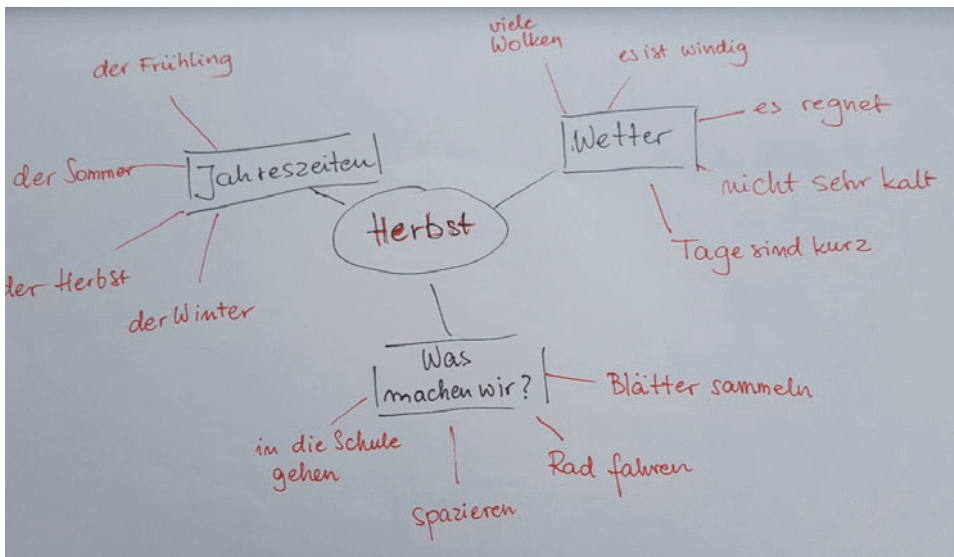 Herbst
Jahreszeiten
der Frühling
der Sommer
der Herbst
der Winter
Wetter
viele
Wolken
es ist windig
es regnet
nicht sehr kalt
Tage sind kurz
Was
machen wir?
in die Schule
gehen
spazieren
Rad fahren
Blätter sammeln